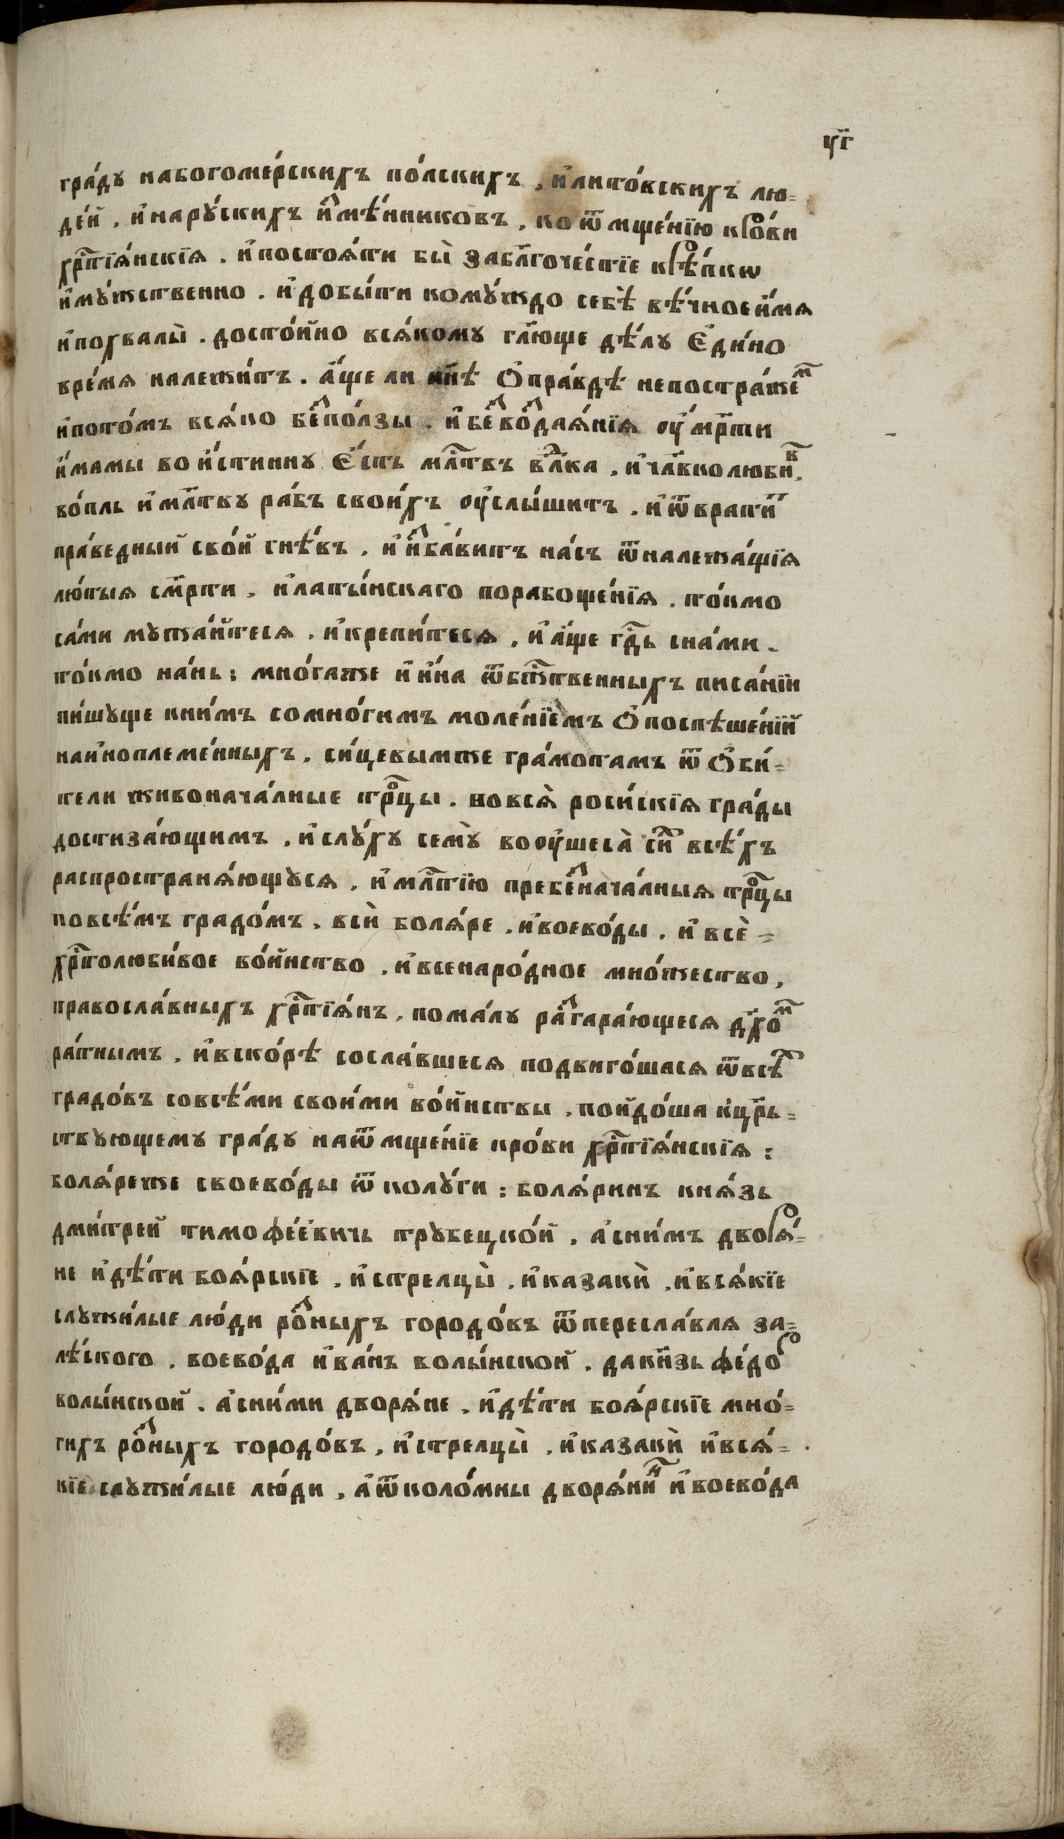 ч҃г
гра́дꙋ набогоме́рскихъ по́лскихъ , и҆лито́вскихъ лю-
де́й , и҆нарꙋ́скихъ и҆ⷥмѣ́нниковъ , ко ѿмще́нїю кро́ви
хрⷭ҇тїя́нскїѧ . и҆постоѧ́ти бы̀ забл҃гоче́стїе крѣ́пкѡ
и҆мꙋ́жственно . и҆добы́ти комꙋ́ждо себѣ̀ вѣ́чное и҆́мѧ
и҆похвалы̀ . досто́йно всѧ́комꙋ гл҃юще дѣ́лꙋ є҆ди́но
вре́мѧ належи́тъ . а҆́ще ли нн҃ѣ ѻ҆пра́вдѣ непостра́жеⷨ
и҆пото́мъ всѧ́ко беⷥпо́лзы . и҆беⷥвоⷥдаѧ́нїѧ ᲂу҆́мрⷭ҇ти
и҆́мамы во и҆́стиннꙋ є҆́сть млⷭ҇твъ влⷣка , и҆чл҃вколюби́ⷡ .
во́пль и҆мл҃твꙋ ра́бъ свои́хъ ᲂу҆слы́шитъ . и҆ѿврати́ⷮ
пра́ведный сво́й гнѣ́въ . и҆и҆ⷥба́витъ на́съ ѿналежа́щїѧ
лю́тыѧ см҃рти . и҆латы́нскаго порабоще́нїѧ . то́кмо
са́ми мꙋжа́йтесѧ . и҆крепи́тесѧ , и҆а҆́ще гдⷭ҇ь сна́ми .
то́кмо на́нь : мно́гаже и҆и҆́на ѿбжⷭ҇твенныхъ писа́нїи
пи́шꙋще кни́мъ сомно́гимъ моле́нїемъ ѻ҆поспѣше́нїй
наи҆ноплеме́нныхъ . си́цевымже гра́мотамъ ѿ ѻ҆би́-
тели живонача́лные трⷪ҇цы . вовсѧ̀ роси́скїѧ гра́ды
достиза́ющимъ . и҆слꙋ́хꙋ семꙋ̀ воᲂу҆шеса̀ си́ⷯ всѣ́хъ
распространѧ́ющꙋсѧ , и҆млⷭ҇тїю пребеⷥнача́лныѧ трⷪ҇цы
повсѣ́мъ градо́мъ . всѝ болѧ́ре . и҆воево́ды . и҆ всѐ -
хрⷭ҇толюби́вое во́йнство . и҆всенаро́дное мно́жество ,
правосла́вныхъ хрⷭ҇тїѧ́нъ . пома́лꙋ раⷥгара́ющесѧ дх҃оⷨ
ра́тнымъ . и҆вско́рѣ сосла́вшесѧ подвиго́шасѧ ѿвсѣⷯ
градо́въ совсѣ́ми свои́ми во́йнствы . пойдо́ша кцрⷭ҇ь-
ствꙋющемꙋ гра́дꙋ наѿмще́нїе кро́ви хрⷭ҇тїѧ́нскїѧ :
болѧ́реже своево́ды ѿ колꙋ́ги : болѧ́ринъ кнѧ́зь
дми́трей тимофе́євичь трꙋбецко́й . а҆сни́мъ дворѧ́-
не и҆дѣ́ти боѧ́рскїе . и҆стрелцы̀ . и҆казакѝ . и҆всѧ́кїе
слꙋжи́лые лю́ди роⷥныхъ городо́въ ѿпересла́влѧ за-
лѣ́ского . воево́да и҆ва́нъ волы́нской . дакн҃зь фе́доⷬ
волы́нской . а҆сни́ми дворѧ́не . и҆дѣ́ти боѧ́рскїе мно́-
гихъ роⷥныхъ городо́въ . и҆стрелцы̀ . и҆казакѝ и҆всѧ́-
кїе слꙋжи́лые лю́ди . а҆ѿколо́мны дворѧ́ниⷩ и҆воево́да